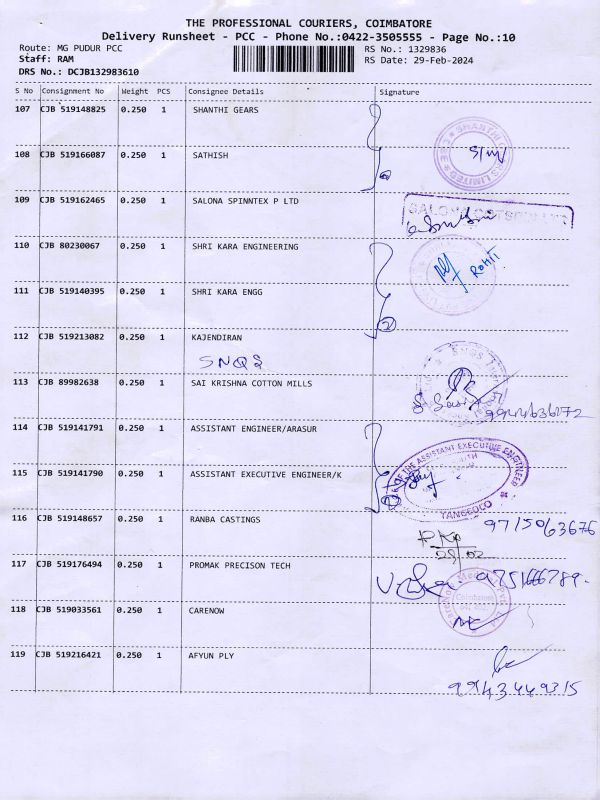 THE PROFESSIONAL COURIERS, COIMBATORE
Delivery Runsheet - PCC - Phone No.:0422-3505555 - Page No.:10
Route: MG PUDUR PCC RS No.: 1329836
Staff: RAM RS Date: 29-Feb-2024
DRS No.: DCJB132983610
S No Consignment No Weight PCS Consignee Details Signature
107 CJB 519148825 0.250 1 SHANTHI GEARS
108 CJB 519166087 0.250 1 SATHISH
109 CJB 519162465 0.250 1 SALONA SPINNTEX P LTD
110 CJB 80230067 0.250 1 SHRI KARA ENGINEERING
ROHIT
111 CJB 519140395 0.250 1 SHRI KARA ENGG
2
112 CJB 519213082 0.250 1 KAJENDIRAN
SNQS
113 CJB 89982638 0.250 1 SAI KRISHNA COTTON MILLS
114 CJB 519141791 0.250 1 ASSISTANT ENGINEER/ARASUR
OF THE ASSISTANT EXECUTIVE ENGINEER
115 CJB 519141790 0.250 1 ASSISTANT EXECUTIVE ENGINEER/K
TANGEDCO
116 CJB 519148657 0.250 1 RANBA CASTINGS
9715063676
29/02
117 CJB 519176494 0.250 1 PROMAK PRECISON TECH
Coimbatore
118 CJB 519033561 0.250 1 CARENOW
119 CJB 519216421 0.250 1 AFYUN PLY
9943449315